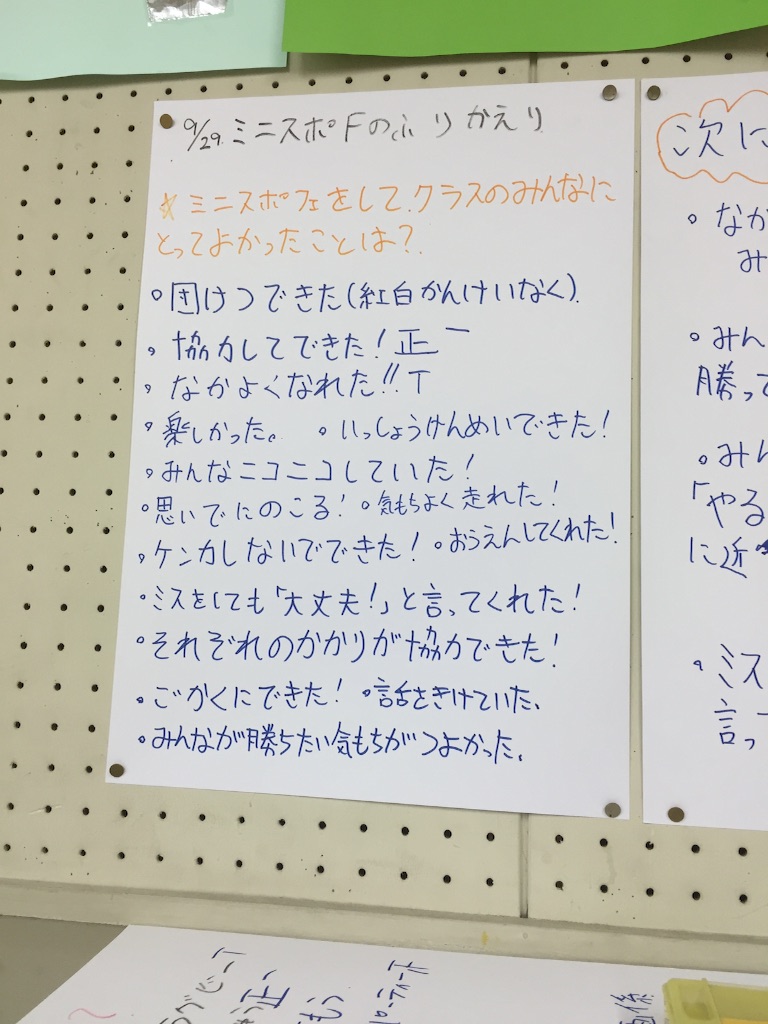 9/29 ミニスポFのふりかえり
☆ミニスポフェをして、クラスのみんなに
とってよかったことは?
。団けつできた(紅白かんけいなく)
。協力してできた!正一
。なかよくなれた!!T
。楽しかった。 。いっしょうけんめいできた!
。みんなニコニコしていた!
。思いでにのこる! 。気もちよく走れた!
。ケンカしないでできた! 。おうえんしてくれた!
。ミスをしても「大丈夫!」と言ってくれた!
。それぞれのかかりが協力できた!
。ごかくにできた! 。話をきけていた、
。みんなが勝ちたい気もちがつよかった、
次に
。なか
み
。みん
勝って
。みん
「やる
に近
。ミス
言っ